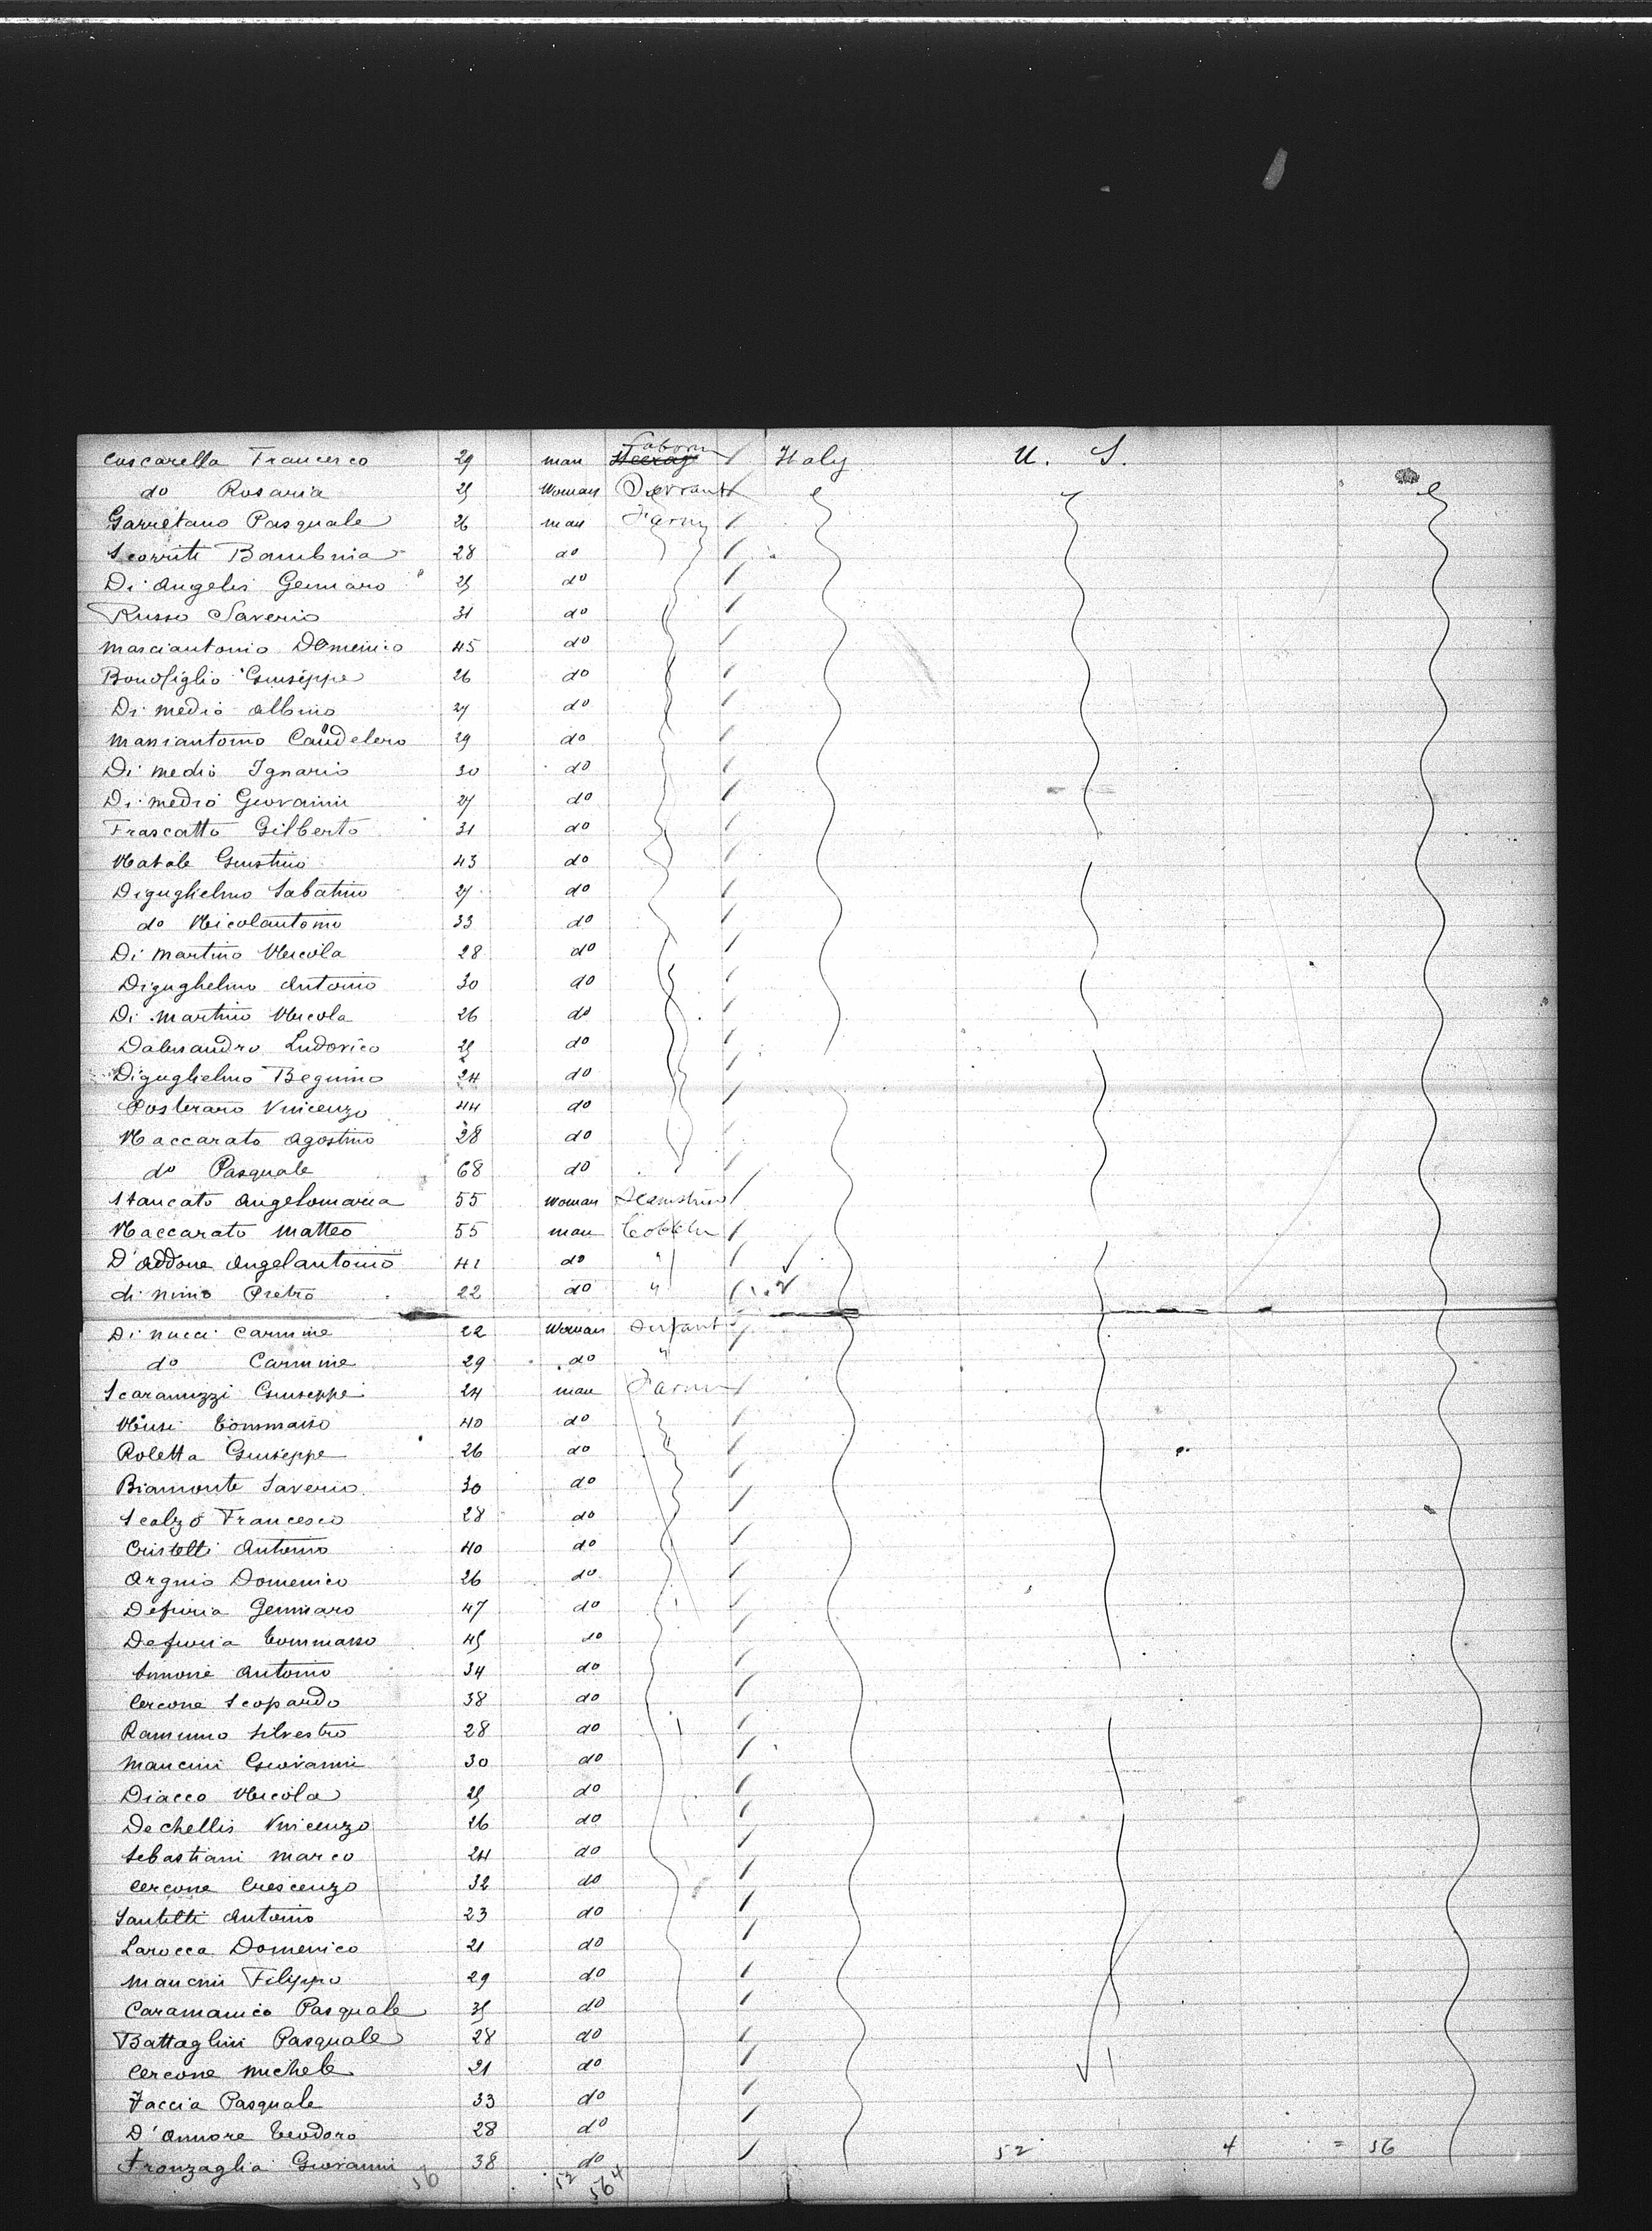 Coscarella Francesco 29 man Laborer Italy U. S.
do Rosaria 25 Woman Servant
Garretano Pasquale 26 man Farm
Scorriti 28 do
Di Angelis Gennaro 25 do
Russo Saverio 31 do
Masciantonio Domenico 45 do
Bonofiglio Giuseppe 26 do
Di Medio Albino 27 do
Masciantonio Candeloro 29 do
Di Medio Ignazio 30 do
Di Medio Giovanni 27 do
Frascatto Gilberto 31 do
Natale Giustino 43 do
Diguglielmo Sabatino 27 do
do Nicolantonio 33 do
Di Martino Nicola 28 do
Diguglielmo Antonio 30 do
Di Martino Nicola 26 do
Dalesandro Ludovico 25 do
Diguglielmo Begnino 24 do
Posteraro Vincenzo 44 do
Naccarato Agostino 28 do
do Pasquale 68 do
Stancato Angelomaria 55 Woman
Naccarato Matteo 55 man Cobbler
D'Addone Angelantonio 41 do "
di Nino Pietro 22 do "
Di Nucci Carmine 22 Woman Servant
do Carmine 29 do "
Scaramuzzi Giuseppe 24 man Farmer
Tommaso 40 do
Roletta Giuseppe 26 do
Biamonte Saverio 30 do
Scalzo Francesco 28 do
Cristelli Antonio 40 do
Domenico 26 do
Defuria Gennaro 47 do
Defuria Tommaso 45 do
Simone Antonio 34 do
Cercone Scopardo 38 do
Ramunno Silvestro 28 do
Mancini Giovanni 30 do
Diacco Nicola 25 do
Dechellis Vincenzo 26 do
Sebastiani Marco 24 do
Cercone Crescenzo 32 do
Santilli Antonio 23 do
Larocca Domenico 21 do
Mancini Filippo 29 do
Caramanico Pasquale 35 do
Battaglini Pasquale 28 do
Cercone Michele 21 do
Faccia Pasquale 33 do
D'Amore Teodoro 28 do
Fronzaglia Giovanni 38 do 52 4 = 56
56 52 4
56